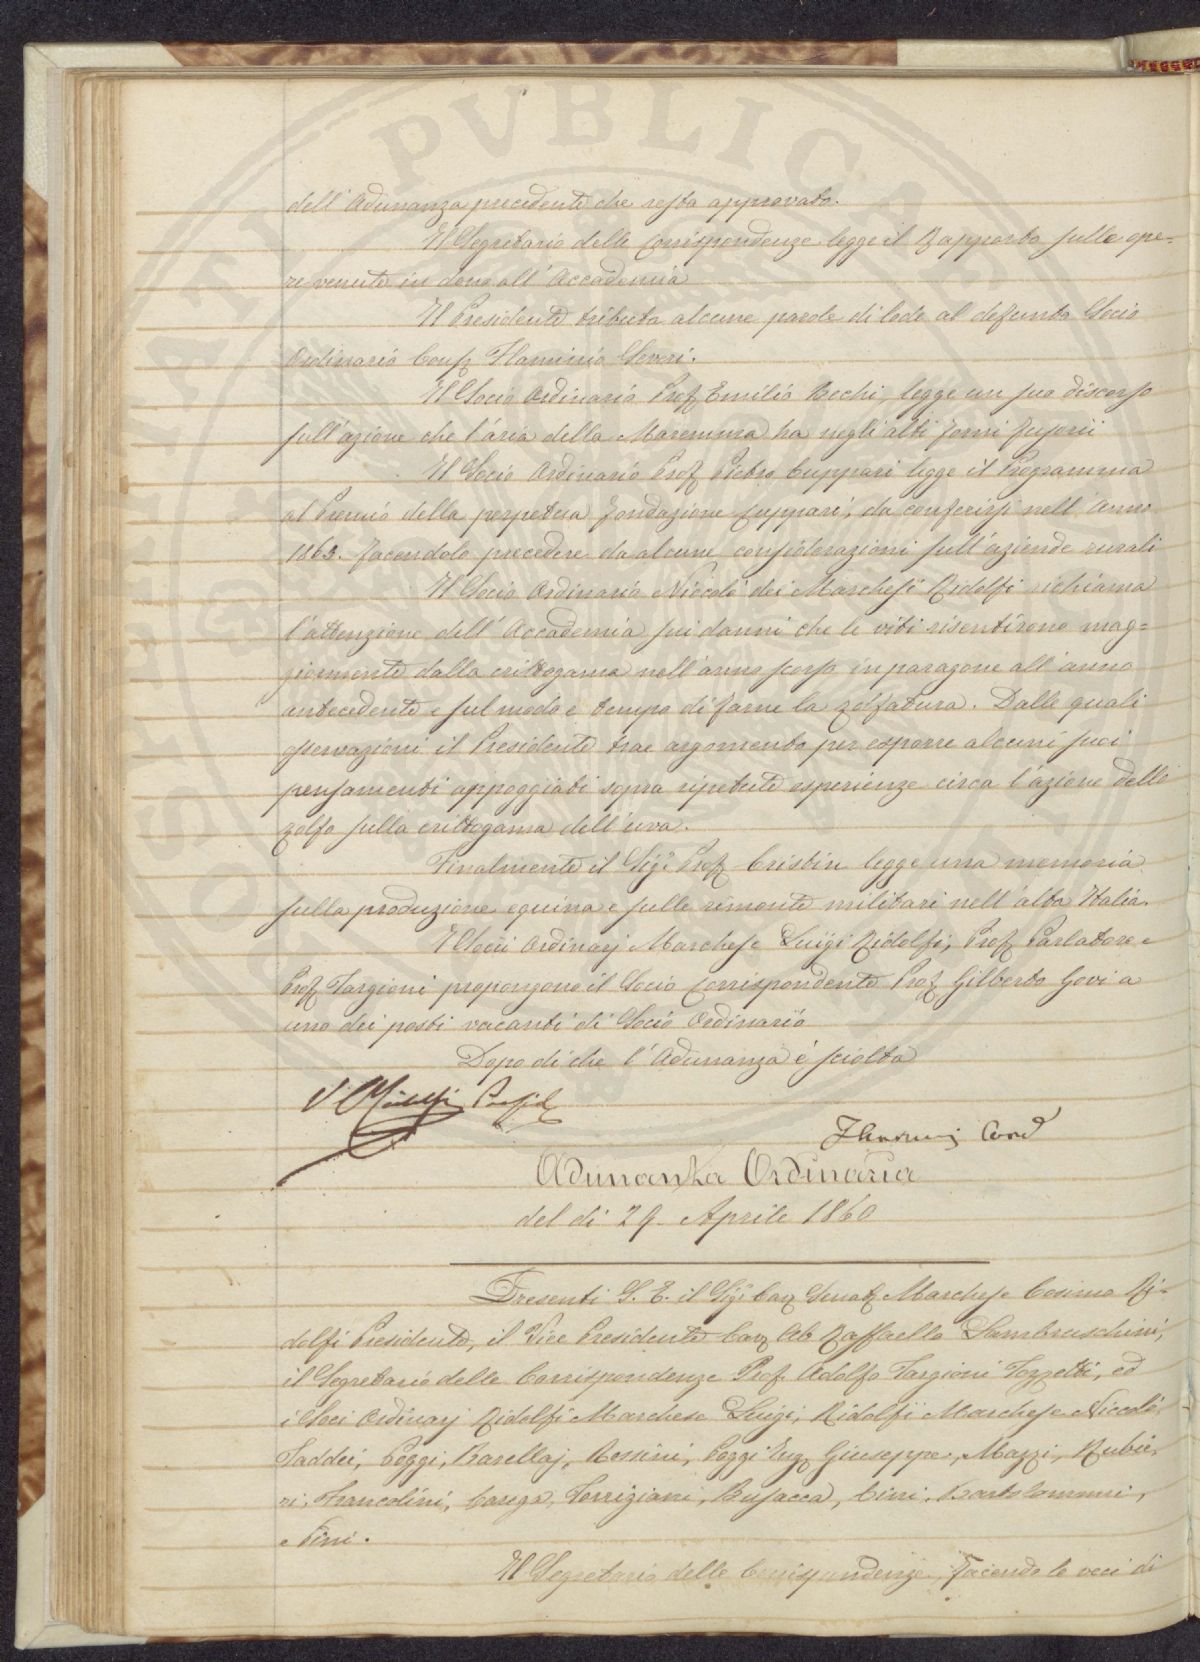 dell' Adunanza precedente che resta approvato.
Il Segretario delle Corrispondenze legge il Rapporto sulle ope=
re venute in dono all' Accademia
Il Presidente tributa alcune parole di lode al defunto Socio
Ordinario Flaminio Severi.
Il Socio Ordinario Prof. Emilio Bechi, legge un suo discorso
sull'azione che l'aria della Maremma ha negli alti forni fusorii
Il Socio Ordinario Prof. Pietro Cuppari legge il Programma
al Premio della perpetua fondazione Cuppari, da conferirsi nell' Anno
1863. facendolo precedere da alcune considerazioni sull'aziende rurali
Il Socio Ordinario Niccolò dei Marchesi Ridolfi richiama
l'attenzione dell' Accademia sui danni che le viti risentirono mag=
giormente dalla crittogama nell'anno scorso in paragone all'anno
antecedente e sul modo e tempo di farne la zolfatura. Dalle quali
osservazioni il Presidente trae argomento per esporre alcuni suoi
pensamenti appoggiati sopra ripetute esperienze circa l'azione dello
zolfo sulla crittogama dell'uva.
Finalmente il Sig.r Prof. Cristin legge una memoria
sulla produzione equina e sulle rimonte militari nell'alta Italia.
I Socii Ordinarj Marchese Luigi Ridolfi, Prof. Parlatore e
Prof. Targioni propongono il Socio Corrispondente Prof. Gilberto Govi a
uno dei posti vacanti di Socio Ordinario
Dopo di che l' Adunanza è sciolta
Ridolfi Presid.
Adunanza Ordinaria
del dì 29. Aprile 1860
Presenti S. E. il Sig.r Cav. Senat. Marchese Cosimo Ri=
dolfi Presidente, il Vice Presidente Cav. Ab. Raffaello Lambruschini,
il Segretario delle Corrispondenze Prof. Adolfo Targioni Tozzetti, ed
i Soci Ordinarj Ridolfi Marchese Luigi, Ridolfi Marchese Niccolò,
Taddei, Poggi, Barellaj, Rossini, Poggi Giuseppe, Mazzi, Rubie=
ri, Francolini, Carega, Torrigiani, Busacca, Cini, Bartolommei,
e Pini.
Il Segretario delle Corrispondenze, facendo le veci di
PVBLICAE